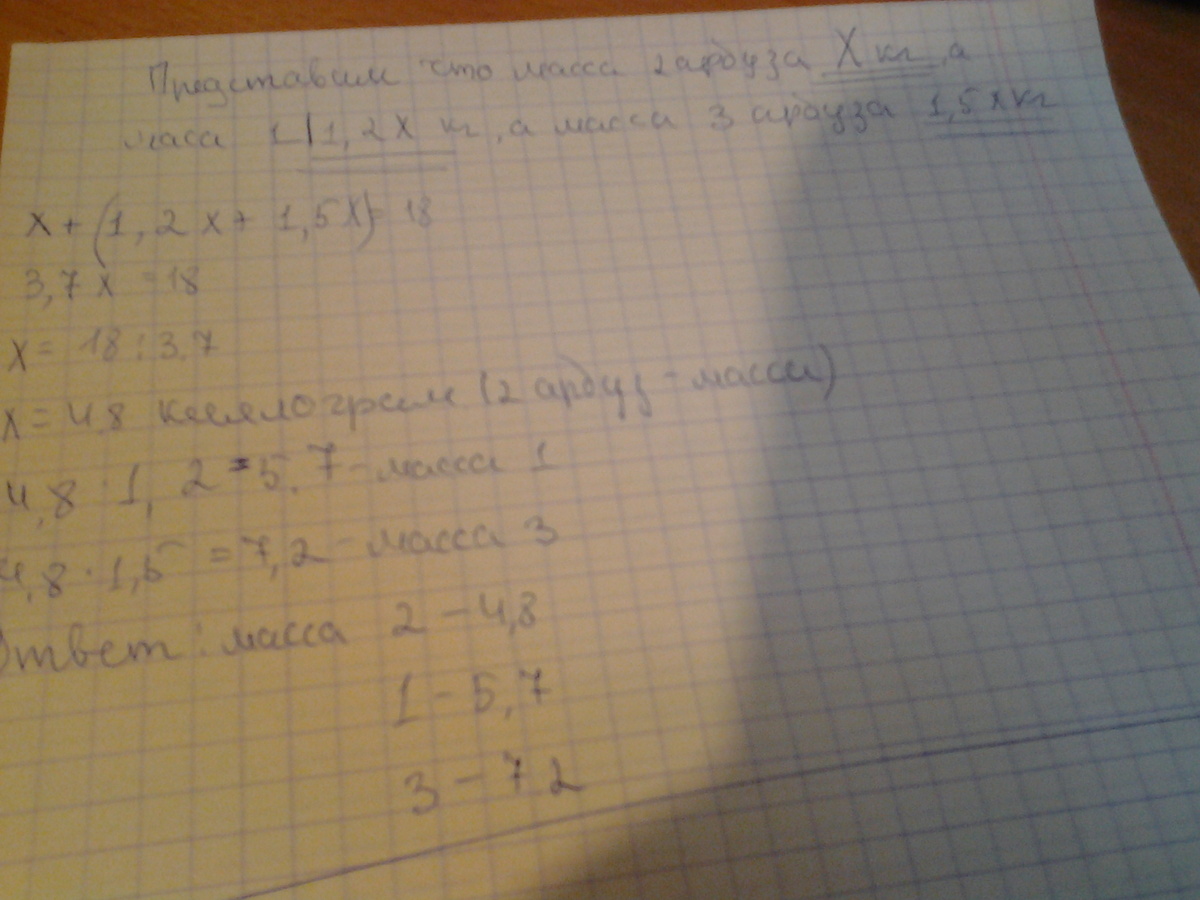 Представим что масса 2 арбуза X кг, а
масса 1 1,2X кг, а масса 3 арбуза 1,5X кг
X + (1,2X + 1,5X) = 18
3,7X = 18
X = 18 : 3.7
X = 4.8 килялограм (2 арбуз - массы)
4,8 · 1,2 = 5.7 - масса 1
4,8 · 1,5 = 7,2 - масса 3
Ответ: масса 2 - 4,8
1 - 5,7
3 - 7 2